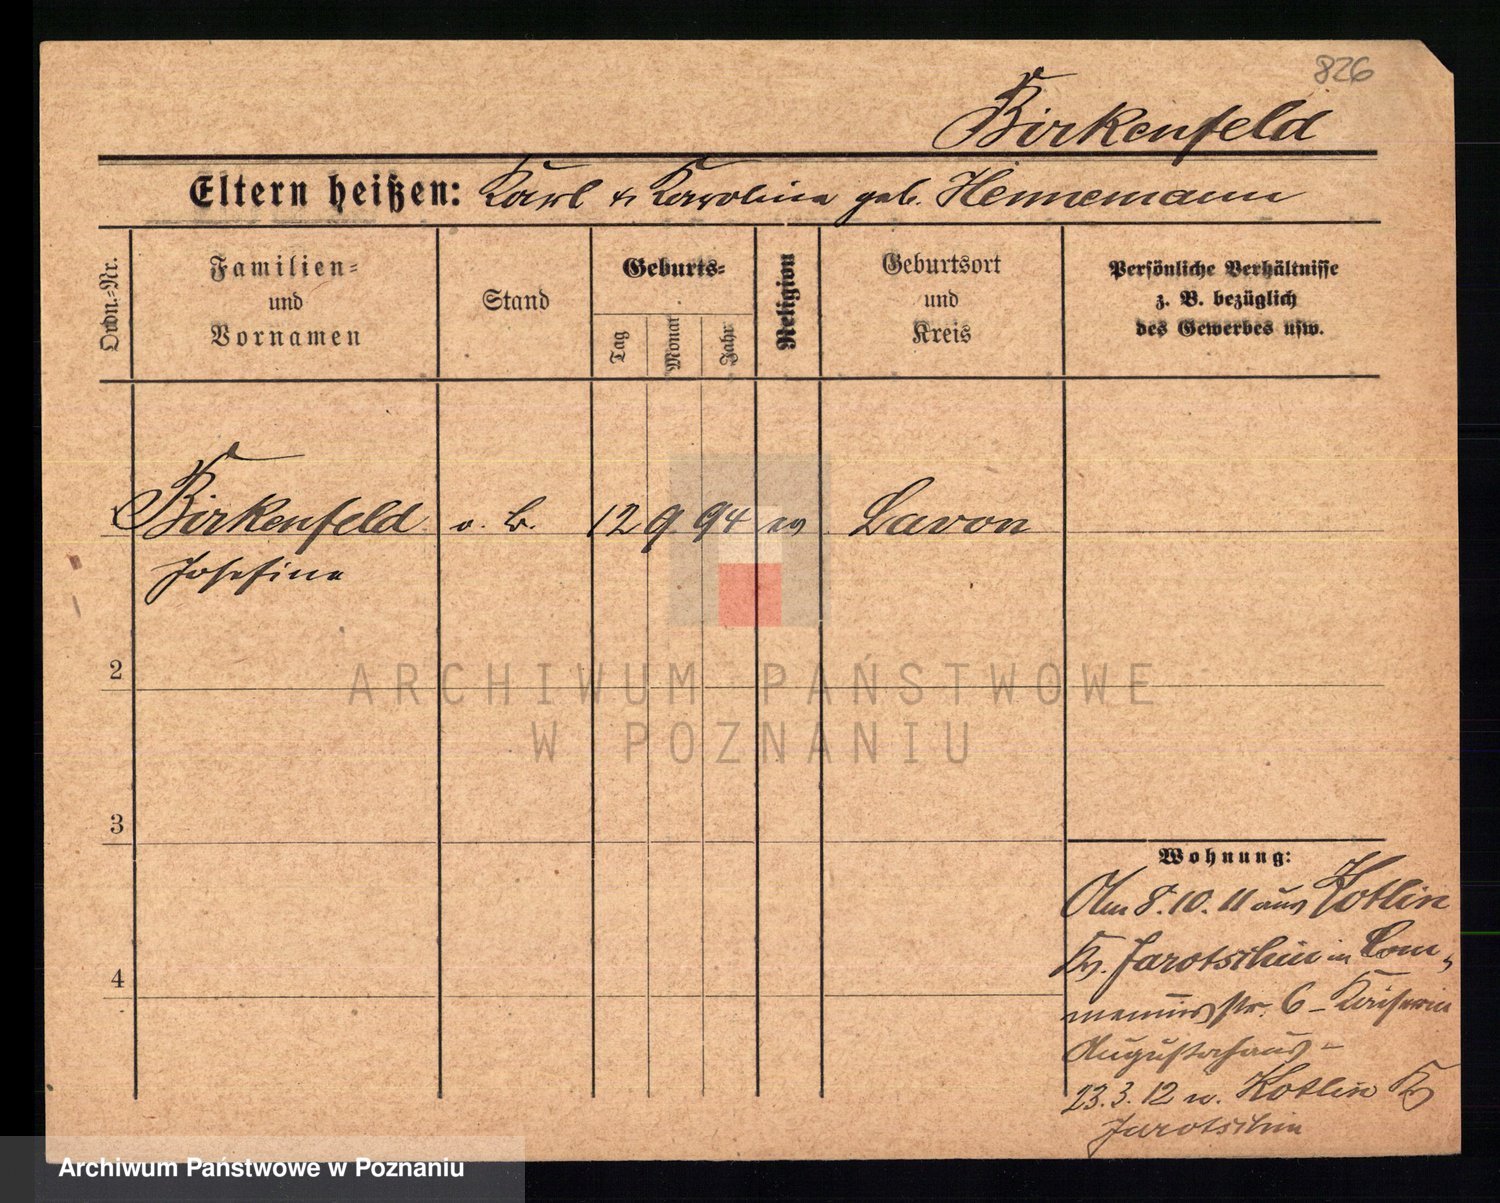 826
Birkenfeld
Eltern heißen: Karl & Karoline geb. Hennemann
Ordn.-Nr.
Familien-
und
Vornamen
Stand
Geburts-
Tag
Monat
Jahr
Religion
Geburtsort
und
Kreis
Persönliche Verhältnisse
z. B. bezüglich
des Gewerbes usw.
Birkenfeld o. B. 12 9 94 ev Lavon
Josefine
2
3
4
Wohnung:
8.10.11 aus Kotlin
Kr. Jarotschin in Com-
meniusstr. 6 - Kaiserin
Augustahaus -
23.3.12 n. Kotlin Kr
Jarotschin
ARCHIWUM PAŃSTWOWE
W POZNANIU
Archiwum Państwowe w Poznaniu